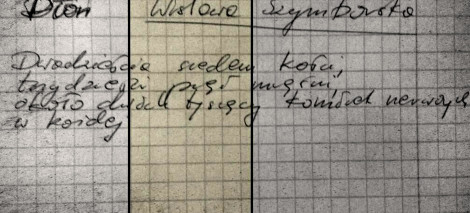 Dłoń Wisława Szymborska
Dwadzieścia siedem kości,
trzydzieści pięć mięśni,
około dwóch tysięcy komórek nerwowych
w każdej